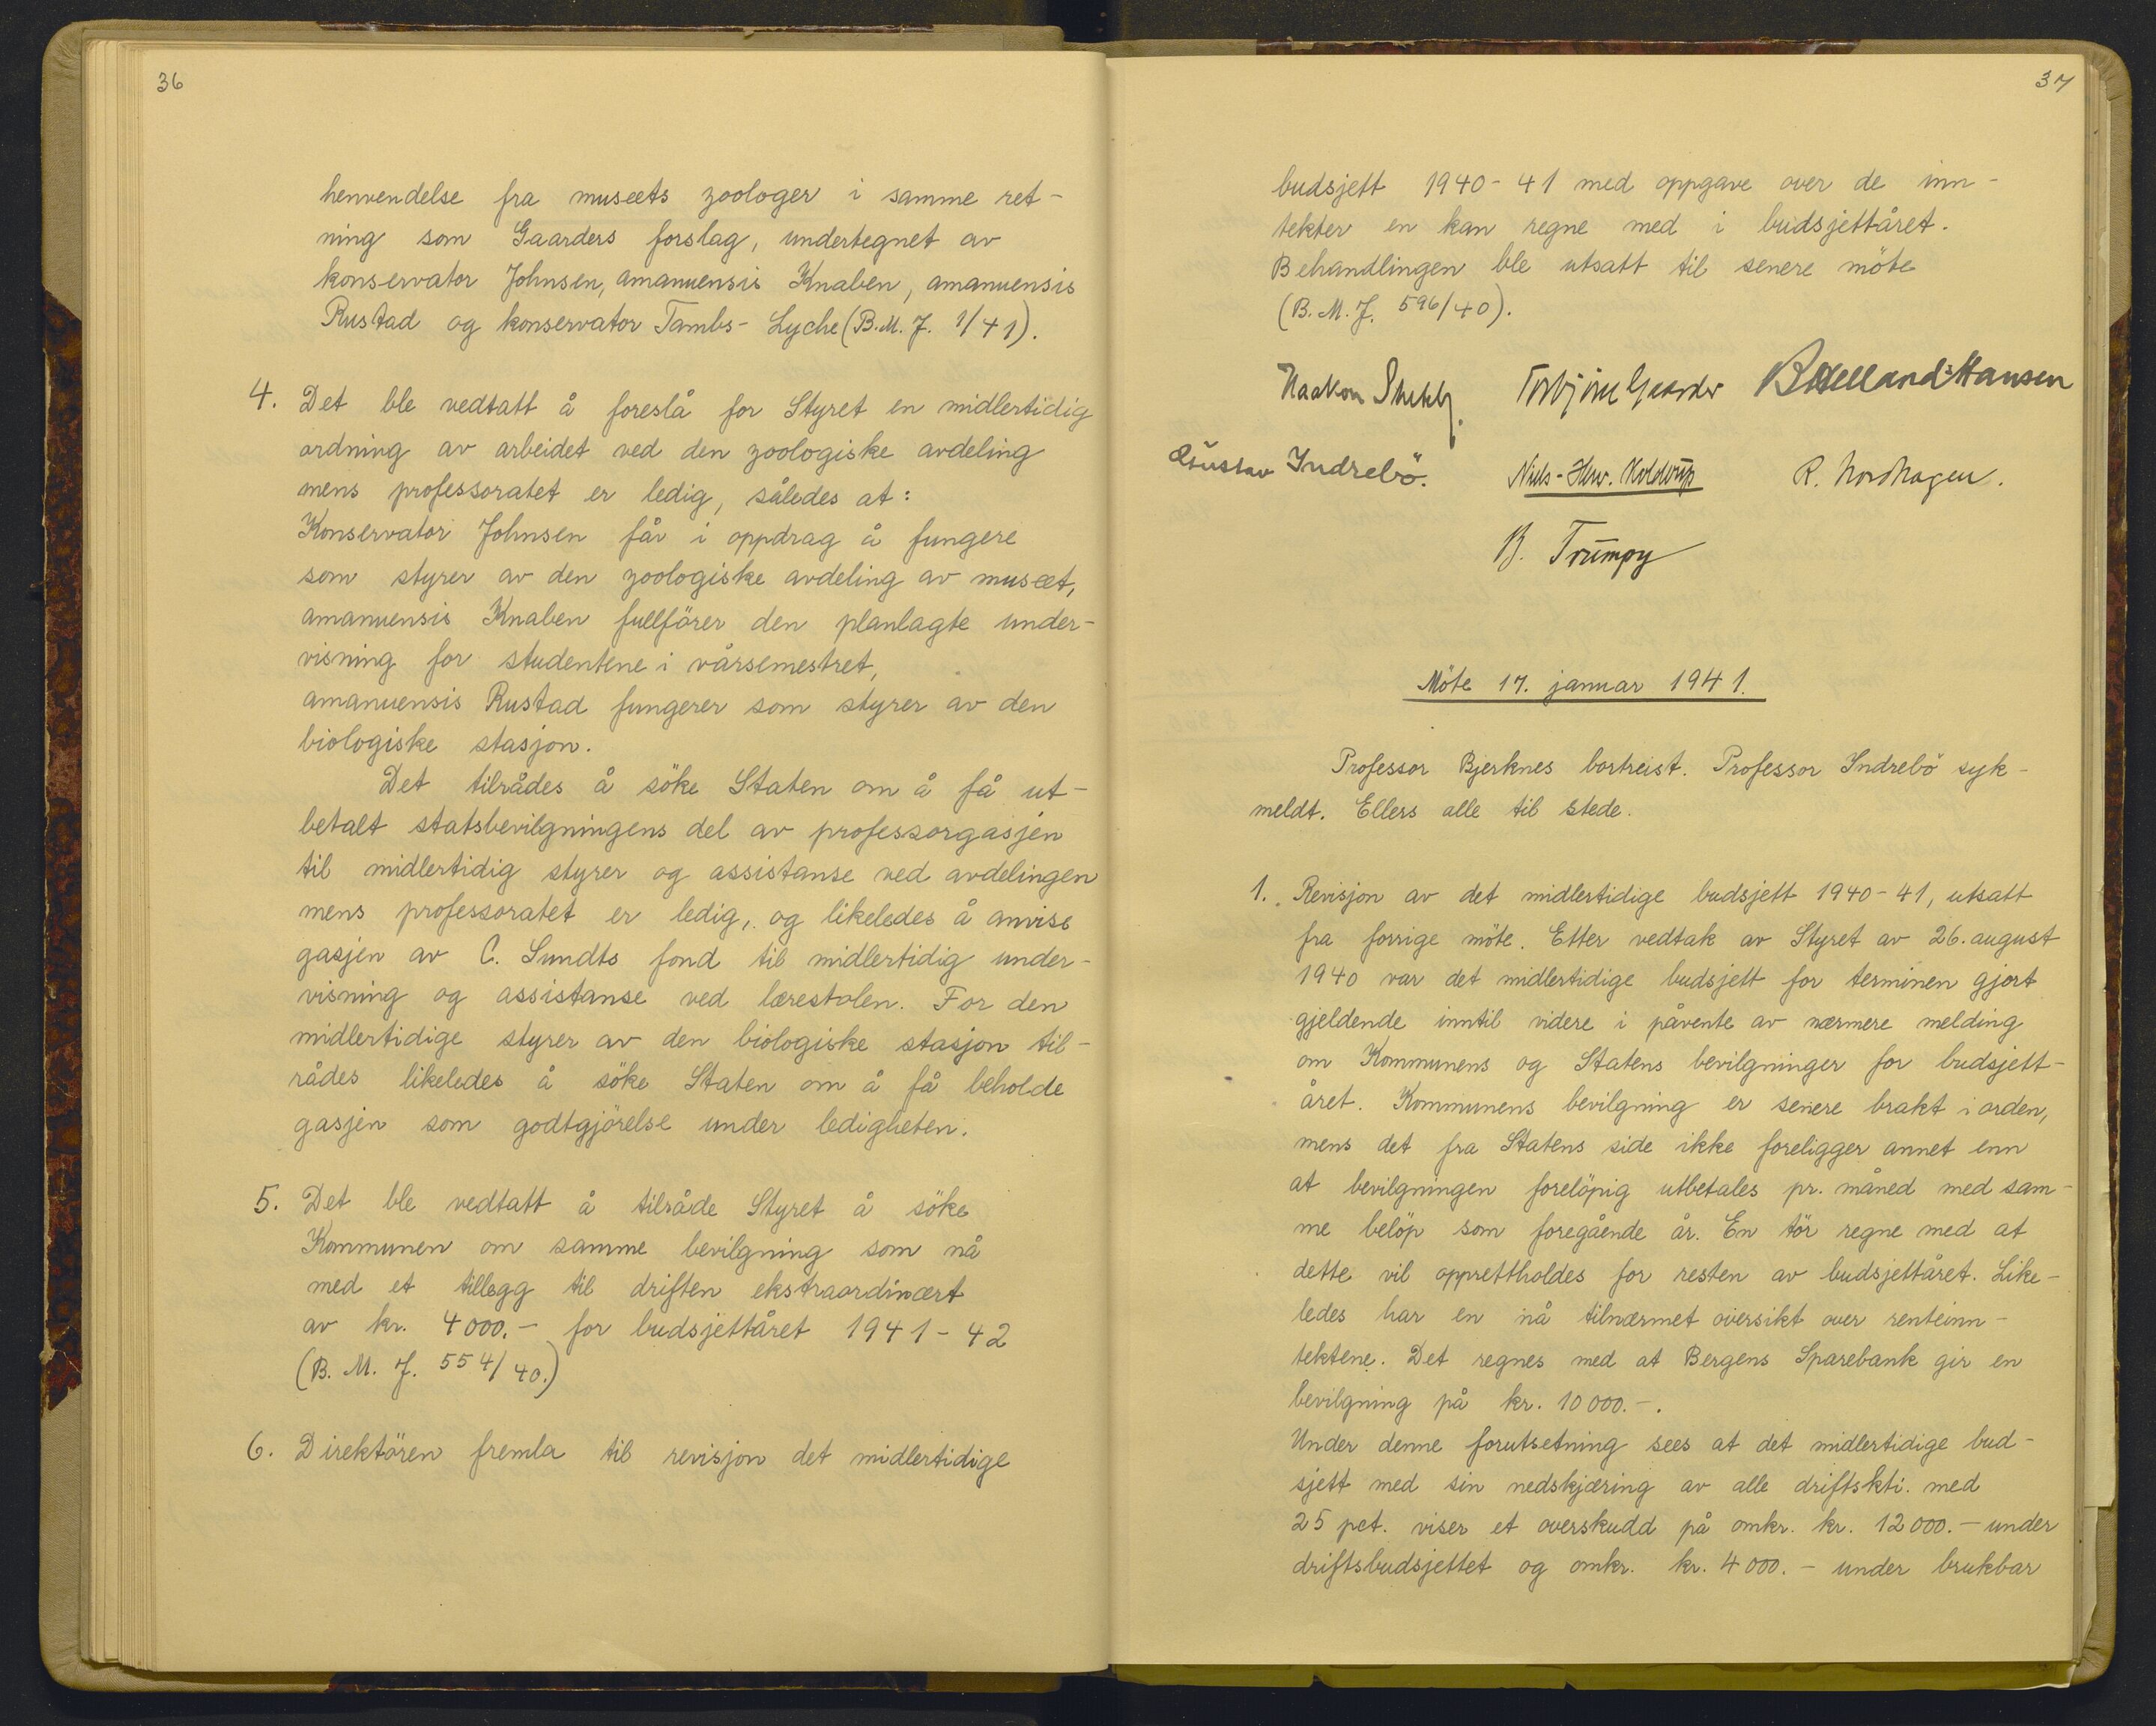 36
henvendelse fra museets zoologer i samme ret-
ning som Gaarders forslag, undertegnet av
konservator Johnsen, amanuensis Knaben, amanuensis
Rustad og konservator Tambs-Lyche (B.M.J. 1/41).
4. Det ble vedtatt å foreslå for Styret en midlertidig
ordning av arbeidet ved den zoologiske avdeling
mens professoratet er ledig, således at:
Konservator Johnsen får i oppdrag å fungere
som styrer av den zoologiske avdeling av museet,
amanuensis Knaben fullförer den planlagte under-
visning for studentene i vårsemestret,
amanuensis Rustad fungerer som styrer av den
biologiske stasjon.
Det tilrådes å söke Staten om å få ut-
betalt statsbevilgningens del av professorgasjen
til midlertidig styrer og assistanse ved avdelingen
mens professoratet er ledig, og likeledes å anvise
gasjen av C. Sundts fond til midlertidig under-
visning og assistanse ved lærestolen. For den
midlertidige styrer av den biologiske stasjon til-
rådes likeledes å söke Staten om å få beholde
gasjen som godtgjörelse under ledigheten.
5. Det ble vedtatt å tilråde Styret å söke
Kommunen om samme bevilgning som nå
med et tillegg til driften ekstraordinært
av kr. 4000.- for budsjettåret 1941-42
(B. M. J. 554/40.)
6. Direktören fremla til revisjon det midlertidige
37
budsjett 1940-41 med oppgave over de inn-
tekter en kan regne med i budsjettåret.
Behandlingen ble utsatt til senere möte
(B. M. J. 596/40).
Haakon Shetelig Torbjörn Gaarder B Helland-Hansen
Gustav Indrebö. Niels-Henr. Kolderup R. Nordhagen.
B. Trumpy
Möte 17. januar 1941.
Professor Bjerknes bortreist. Professor Indrebö syk-
meldt. Ellers alle til stede.
1. Revisjon av det midlertidige budsjett 1940-41, utsatt
fra forrige möte. Etter vedtak av Styret av 26. august
1940 var det midlertidige budsjett for terminen gjort
gjeldende inntil videre i påvente av nærmere melding
om Kommunens og Statens bevilgninger for budsjett-
året. Kommunens bevilgning er senere brakt i orden,
mens det fra Statens side ikke foreligger annet enn
at bevilgningen forelöpig utbetales pr. måned med sam-
me belöp som foregående år. En tör regne med at
dette vil opprettholdes for resten av budsjettåret. Like-
ledes har en nå tilnærmet oversikt over renteinn-
tektene. Det regnes med at Bergens Sparebank gir en
bevilgning på kr. 10000.-.
Under denne forutsetning sees at det midlertidige bud-
sjett med sin nedskjæring av alle driftskti. med
25 pct. viser et overskudd på omkr. kr. 12000.- under
driftsbudsjettet og omkr. kr. 4000.- under brukbar